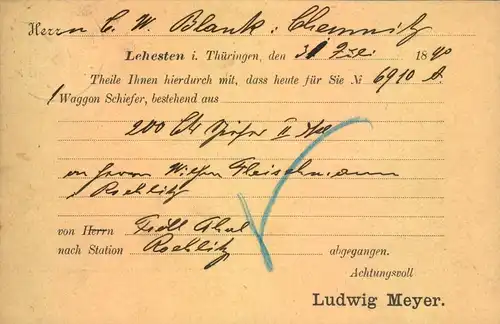 Herrn C. W. Blank, Chemnitz
Lehesten i. Thüringen, den 31 Juli 1890
Theile Ihnen hierdurch mit, dass heute für Sie № 6910
1 Waggon Schiefer, bestehend aus
200 Ctr Schiefer II
an Herrn Wilhm Fleischmann
Rochlitz
von Herrn
nach Station Rochlitz abgegangen.
Achtungsvoll
Ludwig Meyer.